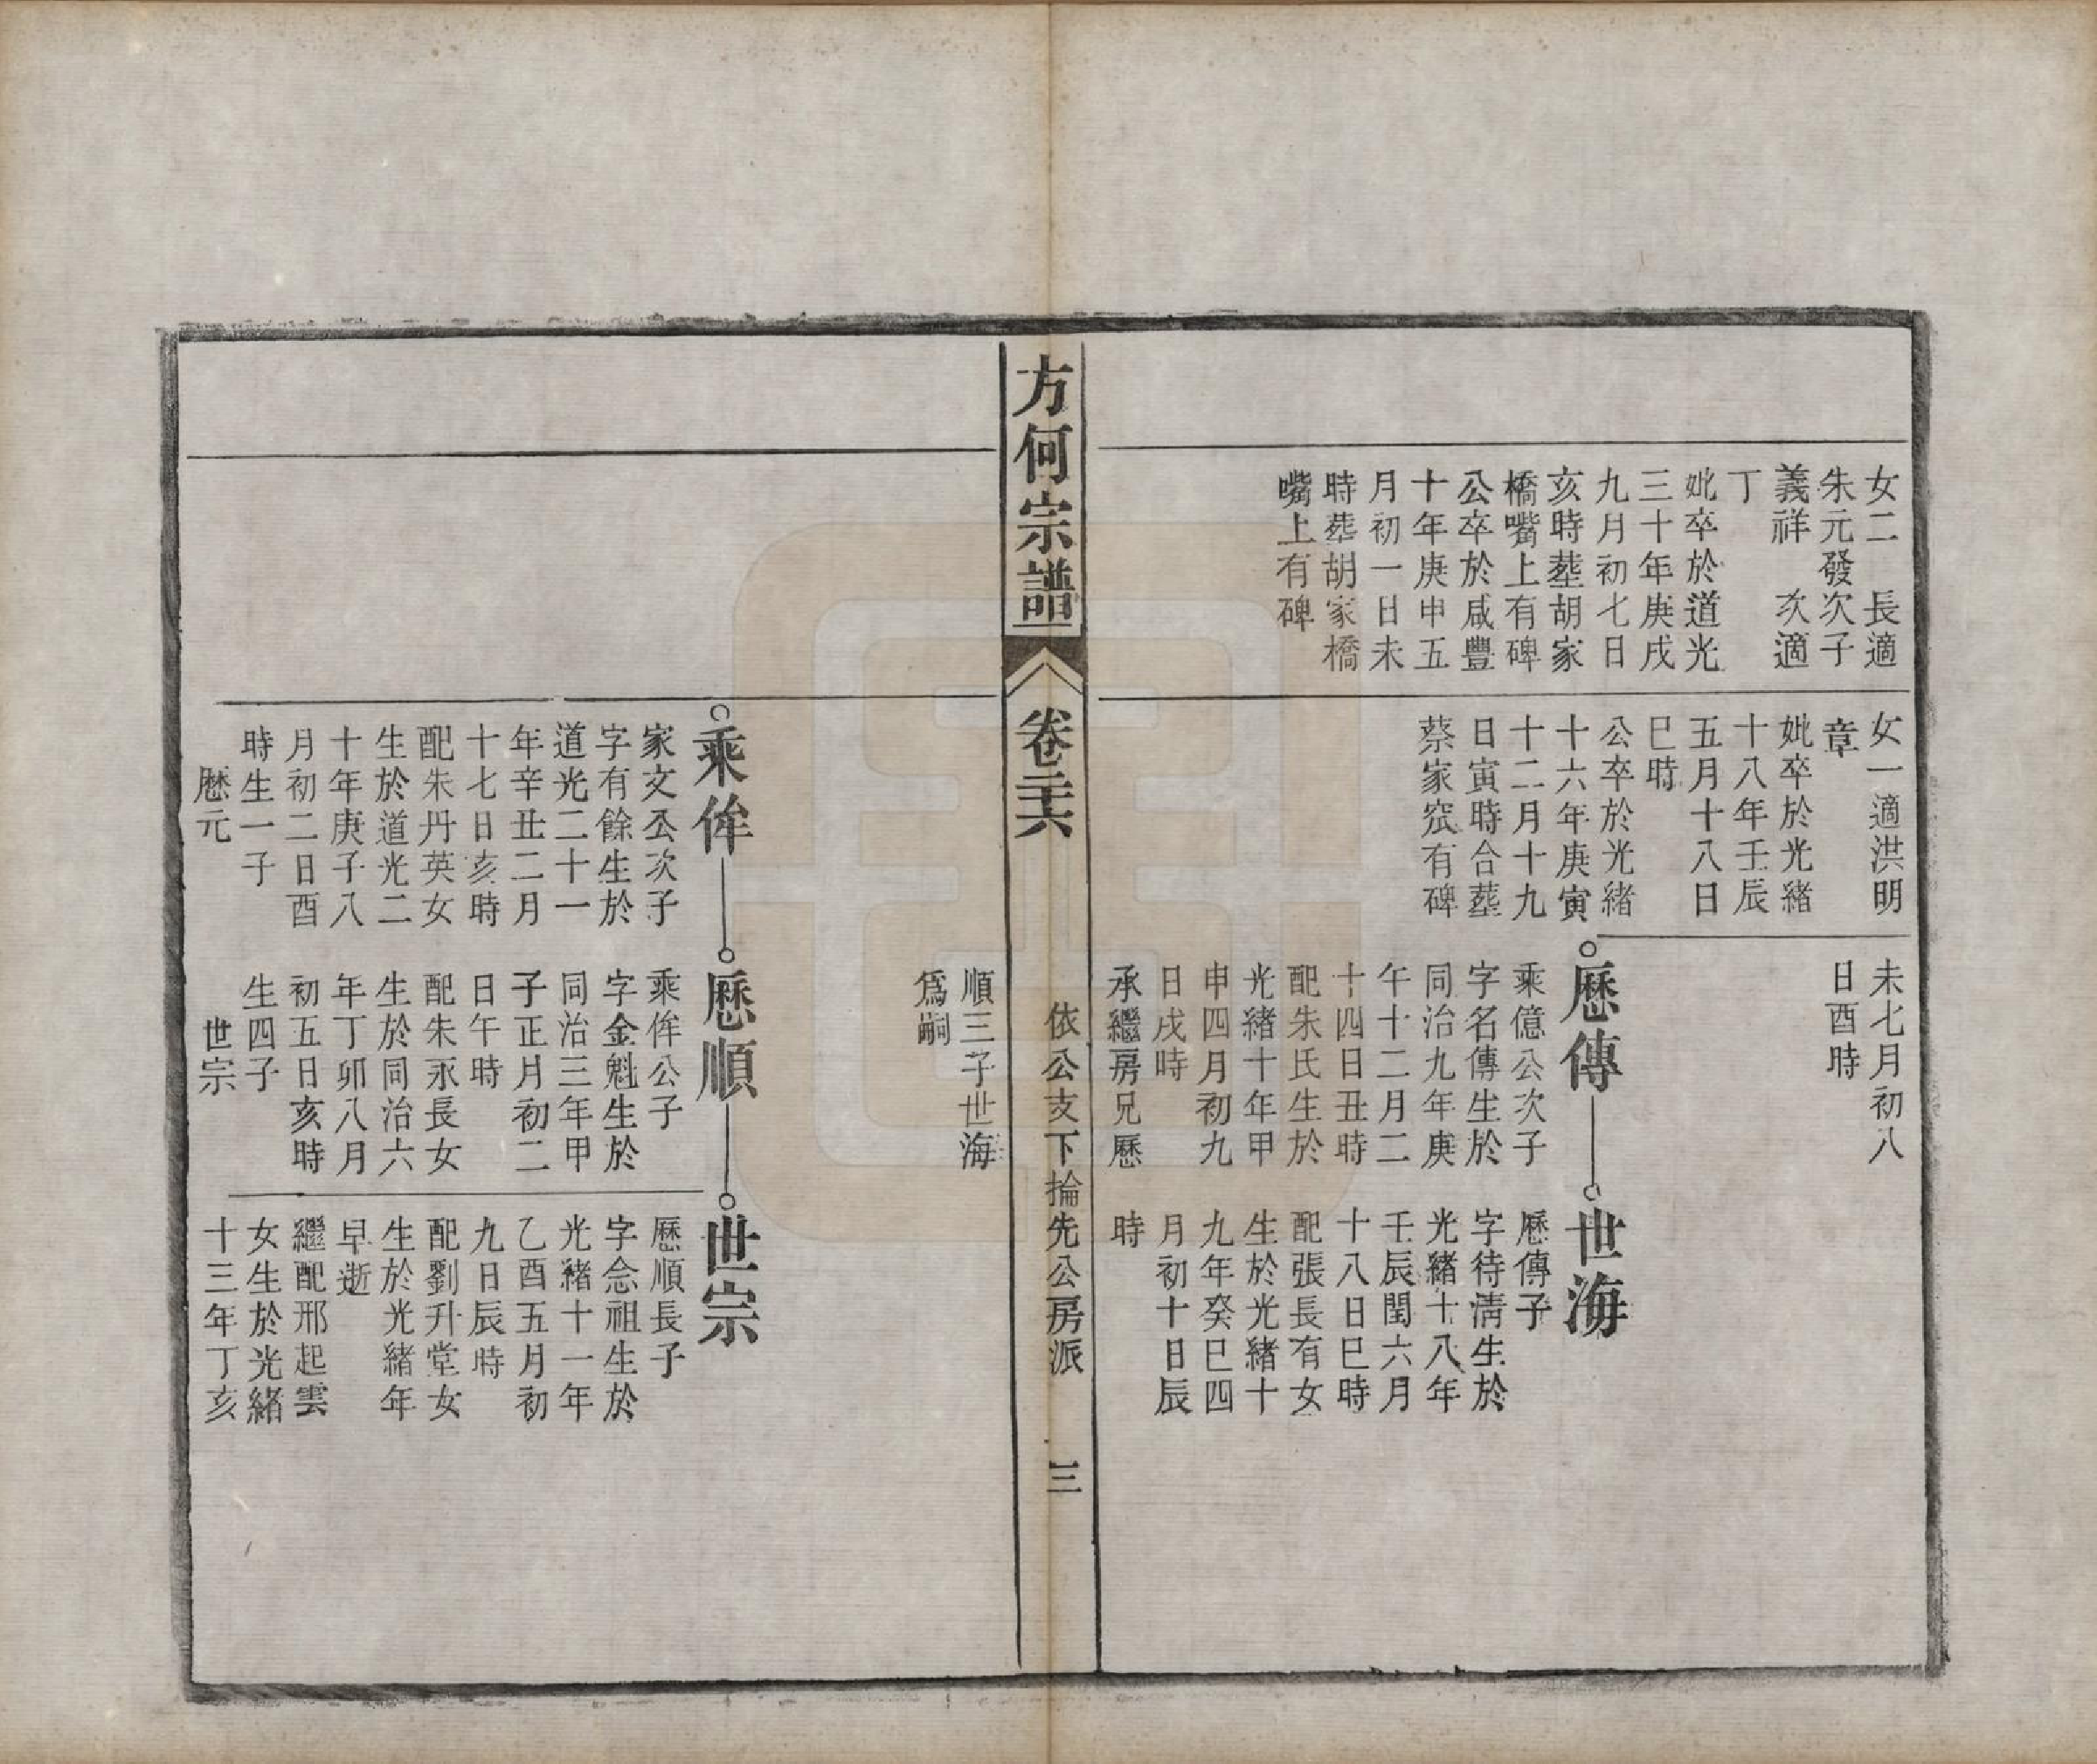 女二　長適
朱元發次子
義祥　次適
丁
妣卒於道光
三十年庚戌
九月初七日
亥時塟胡家
橋嘴上有碑
公卒於咸豐
十年庚申五
月初一日未
時塟胡家橋
嘴上有碑
女一適洪明
章
妣卒於光緒
十八年壬辰
五月十八日
巳時
公卒於光緒
十六年庚寅
十二月十九
日寅時合塟
蔡家窊有碑
未七月初八
日酉時
歷傳
乘億公次子
字名傳生於
同治九年庚
午十二月二
十四日丑時
配朱氏生於
光緒十年甲
申四月初九
日戌時
承繼房兄歷
世海
歷傳子
字待清生於
光緒十八年
壬辰閏六月
十八日巳時
配張長有女
生於光緒十
九年癸巳四
月初十日辰
時
方何宗譜
卷二十六
依公支下掄先公房派
三
順三子世海
爲嗣
乘侔
家文公次子
字有餘生於
道光二十一
年辛丑二月
十七日亥時
配朱丹英女
生於道光二
十年庚子八
月初二日酉
時生一子
歷元
歷順
乘侔公子
字金魁生於
同治三年甲
子正月初二
日午時
配朱永長女
生於同治六
年丁卯八月
初五日亥時
生四子
世宗
世宗
歷順長子
字念祖生於
光緒十一年
乙酉五月初
九日辰時
配劉升堂女
生於光緒年
早逝
繼配邢起雲
女生於光緒
十三年丁亥